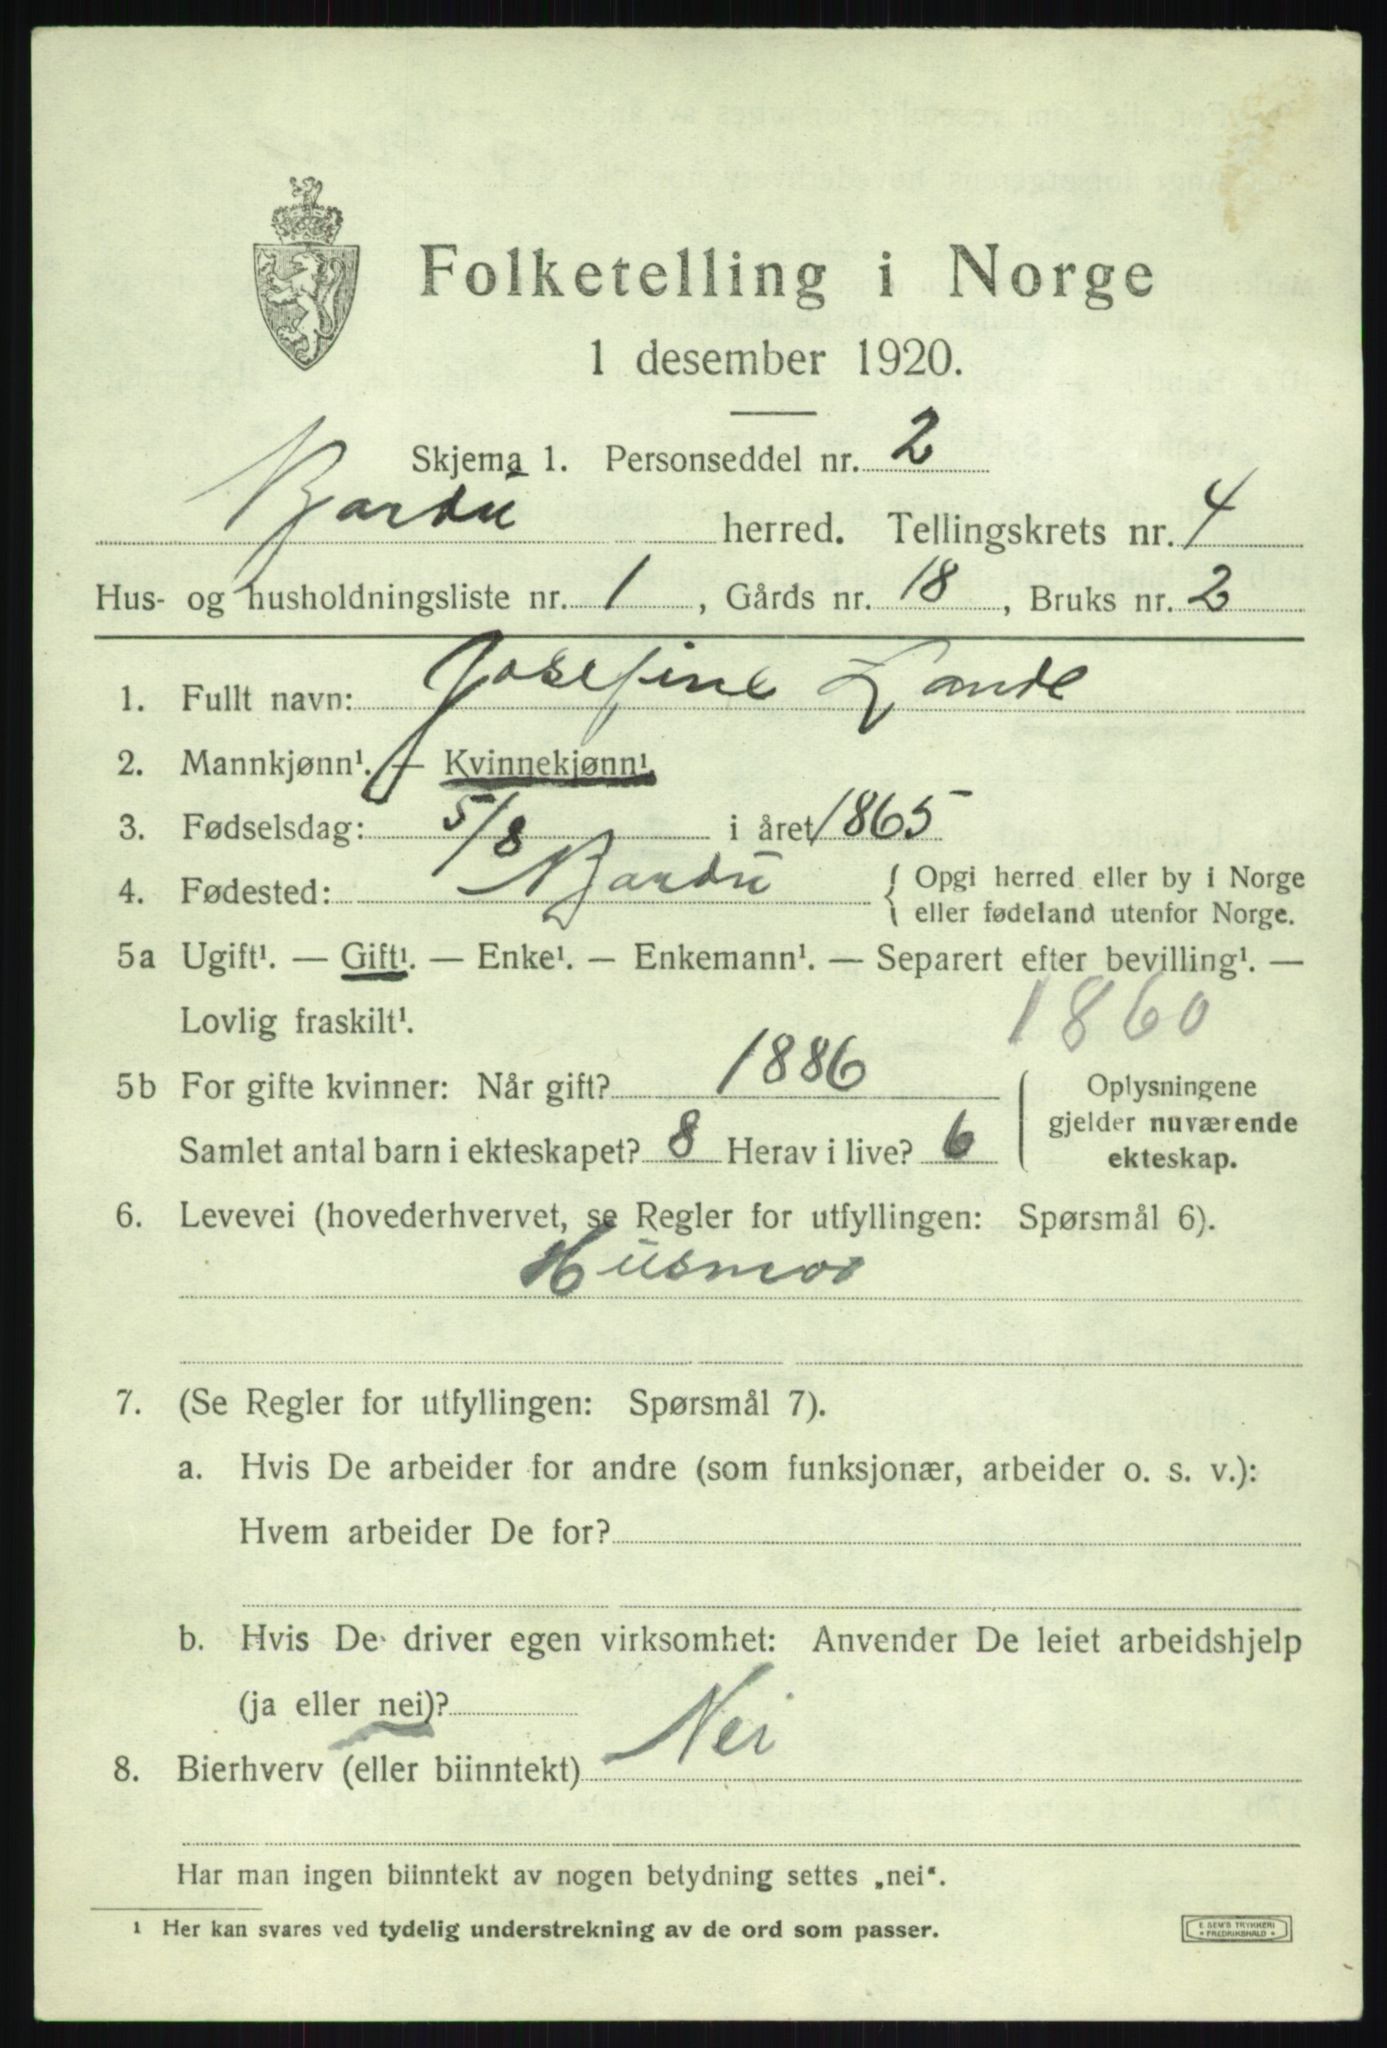 Folketelling i Norge
1 desember 1920.
Skjema 1. Personseddel nr. 2
Bardu herred. Tellingskrets nr. 4
Hus- og husholdningsliste nr. 1, Gårds nr. 18, Bruks nr. 2
1. Fullt navn: Josefine Lande
2. Mannkjønn¹. — Kvinnekjønn¹.
3. Fødselsdag: 5/8 i året 1865
4. Fødested: Bardu { Opgi herred eller by i Norge
eller fødeland utenfor Norge.
5a Ugift¹. — Gift¹. — Enke¹. — Enkemann¹. — Separert efter bevilling¹. —
Lovlig fraskilt¹. 1860
5b For gifte kvinner: Når gift? 1886 Oplysningene
gjelder nuværende
Samlet antal barn i ekteskapet? 8 Herav i live? 6 ekteskap.
6. Levevei (hovederhvervet, se Regler for utfyllingen: Spørsmål 6).
Husmor
7. (Se Regler for utfyllingen: Spørsmål 7).
a. Hvis De arbeider for andre (som funksjonær, arbeider o. s. v.):
Hvem arbeider De for?
b. Hvis De driver egen virksomhet: Anvender De leiet arbeidshjelp
(ja eller nei)?
8. Bierhverv (eller biinntekt) Nei
Har man ingen biinntekt av nogen betydning settes „nei“.
¹ Her kan svares ved tydelig understrekning av de ord som passer.
E. SEM'S TRYKKERI
* FREDRIKSHALD *